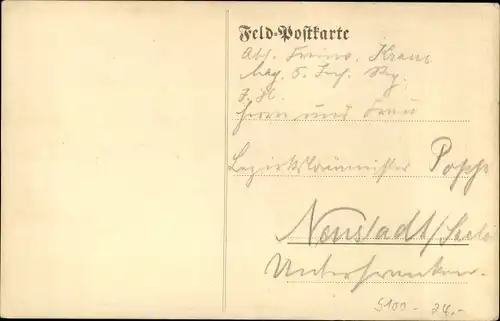 Feld-Postkarte
Abs. Kraus
5. Inf. Rg.
Herrn und Frau
Bezirksbaumeister Popp
Neustadt/Saale
Unterfranken.
5100 - 24.-